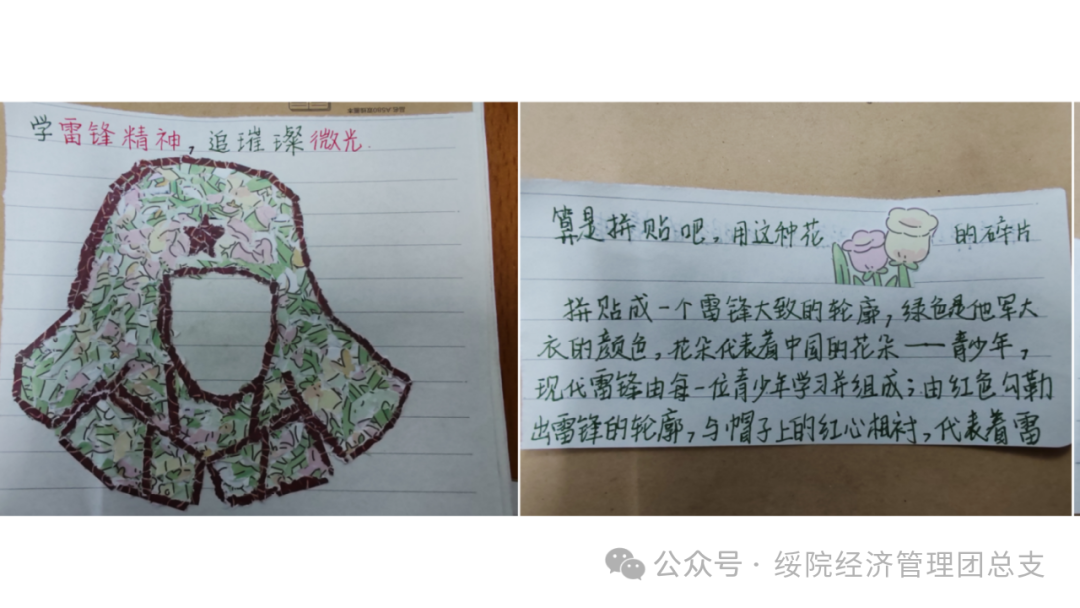 学雷锋精神，追璀璨微光.
算是拼贴吧，用这种花的碎片
拼贴成一个雷锋大致的轮廓，绿色是他军大
衣的颜色，花朵代表着中国的花朵——青少年，
现代雷锋由每一位青少年学习并组成；由红色勾勒
出雷锋的轮廓，与帽子上的红心相衬，代表着雷
公众号·绥院经济管理团总支